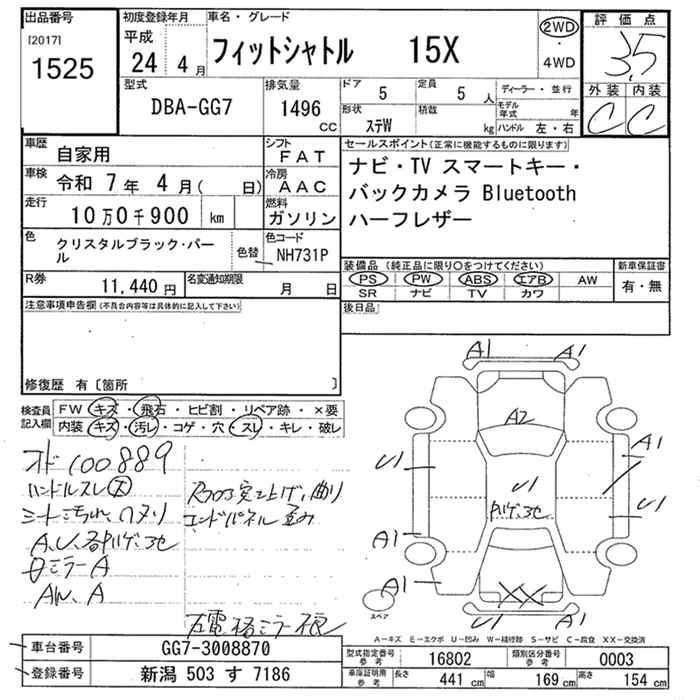 出品番号
[2017]
1525
初度登録年月
平成
24 4月
車名・グレード
フィットシャトル 15X
2WD
・
4WD
評価点
3.5
外装 内装
C C
型式
DBA-GG7
排気量
1496
cc
ドア 5
定員 5 人
形状 ステW
積載 kg
ディーラー・並行
モデル年式 年
ハンドル 左・右
車歴 自家用
シフト FAT
車検 令和 7年 4月( 日)
冷房 AAC
走行 10万0千900 km
燃料 ガソリン
色 クリスタルブラック・パール
色替
色コード NH731P
R券 11,440 円
名変通知期限 月 日
セールスポイント(正常に機能するものに限ります)
ナビ・TV スマートキー・
バックカメラ Bluetooth
ハーフレザー
装備品(純正品に限り○をつけてください)
PS PW ABS エアB AW
SR ナビ TV カワ
新車保証書
有・無
後日品
注意事項申告欄(不具合内容等は具体的に記入して下さい)
修復歴 有〔箇所 〕
検査員記入欄
FW キズ・飛石・ヒビ割・リペア跡・×要
内装 キズ・汚レ・コゲ・穴・スレ・キレ・破レ
オド100889
ハンドルスレ大
シート汚れ、
A.U.各
ミラーA
AW.A
突上げ、曲り
エンドパネル歪み
A1 A1
A2
U1
A1
U1
U1
A1
A1
XX
A1
スペア
A-キズ E-エクボ U-凹み W-補修跡 S-サビ C-腐食 XX-交換済
車台番号 GG7-3008870
登録番号 新潟 503 す 7186
型式指定番号 参考 16802
類別区分番号 参考 0003
車庫証明用 参考
長さ 441 cm
幅 169 cm
高さ 154 cm